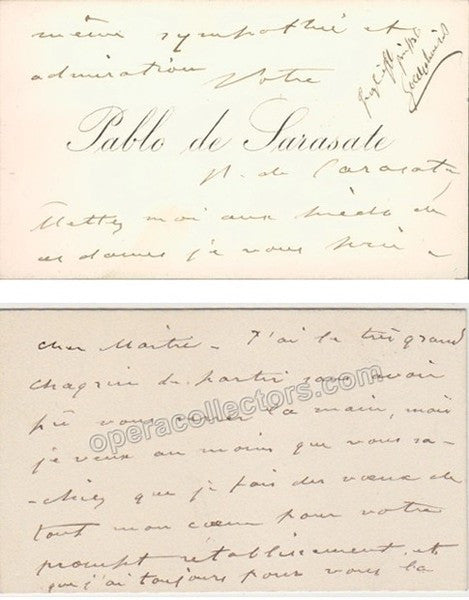 même sympathie et
admiration Votre
Pablo de Sarasate
P. de Sarasate
Mettez moi aux pieds de
ces dames je vous prie
cher Maître - J'ai le très grand
chagrin de partir sans avoir
pû vous serrer la main, mais
je veux au moins que vous sa-
-chiez que je fais des vœux de
tout mon cœur pour votre
prompt rétablissement, et
que j'ai toujours pour vous la
operacollectors.com